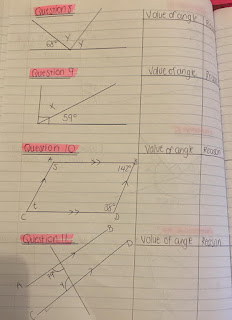 Question 8
Value of angle
68°
x
y
Question 9
Value of angle
x
59°
Question 10
Value of angle Reason
A
B
s
142°
t
38°
C
D
Question 11
Value of angle Reason
B
D
A
y
C